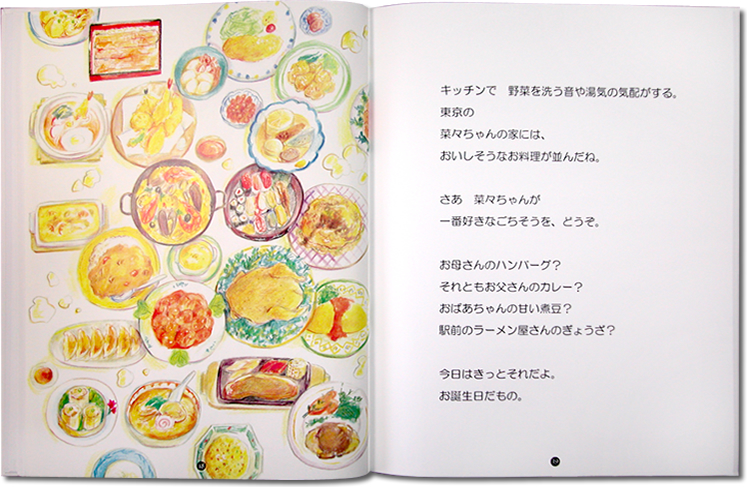 キッチンで　野菜を洗う音や湯気の気配がする。
東京の
菜々ちゃんの家には、
おいしそうなお料理が並んだね。
さあ　菜々ちゃんが
一番好きなごちそうを、どうぞ。
お母さんのハンバーグ？
それともお父さんのカレー？
おばあちゃんの甘い煮豆？
駅前のラーメン屋さんのぎょうざ？
今日はきっとそれだよ。
お誕生日だもの。